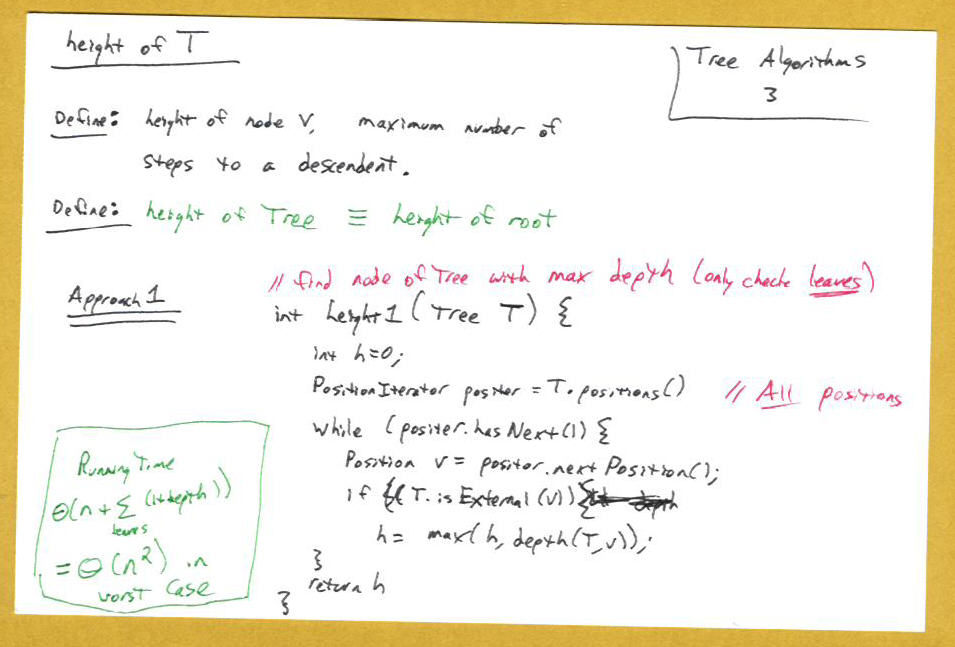 height of T
Tree Algorithms
3
Define: height of node v, maximum number of
steps to a descendent.
Define: height of Tree ≡ height of root
Approach 1
// find node of Tree with max depth (only check leaves)
int height1 (Tree T) {
int h=0;
PositionIterator positer = T.positions() // All positions
while (positer.hasNext()) {
Position v = positor.nextPosition();
if ((T.isExternal(v)) {
h = max(h, depth(T,v));
}
return h
}
Running Time
Θ(n + Σ (1+depth))
leaves
= Θ(n²) in
worst case